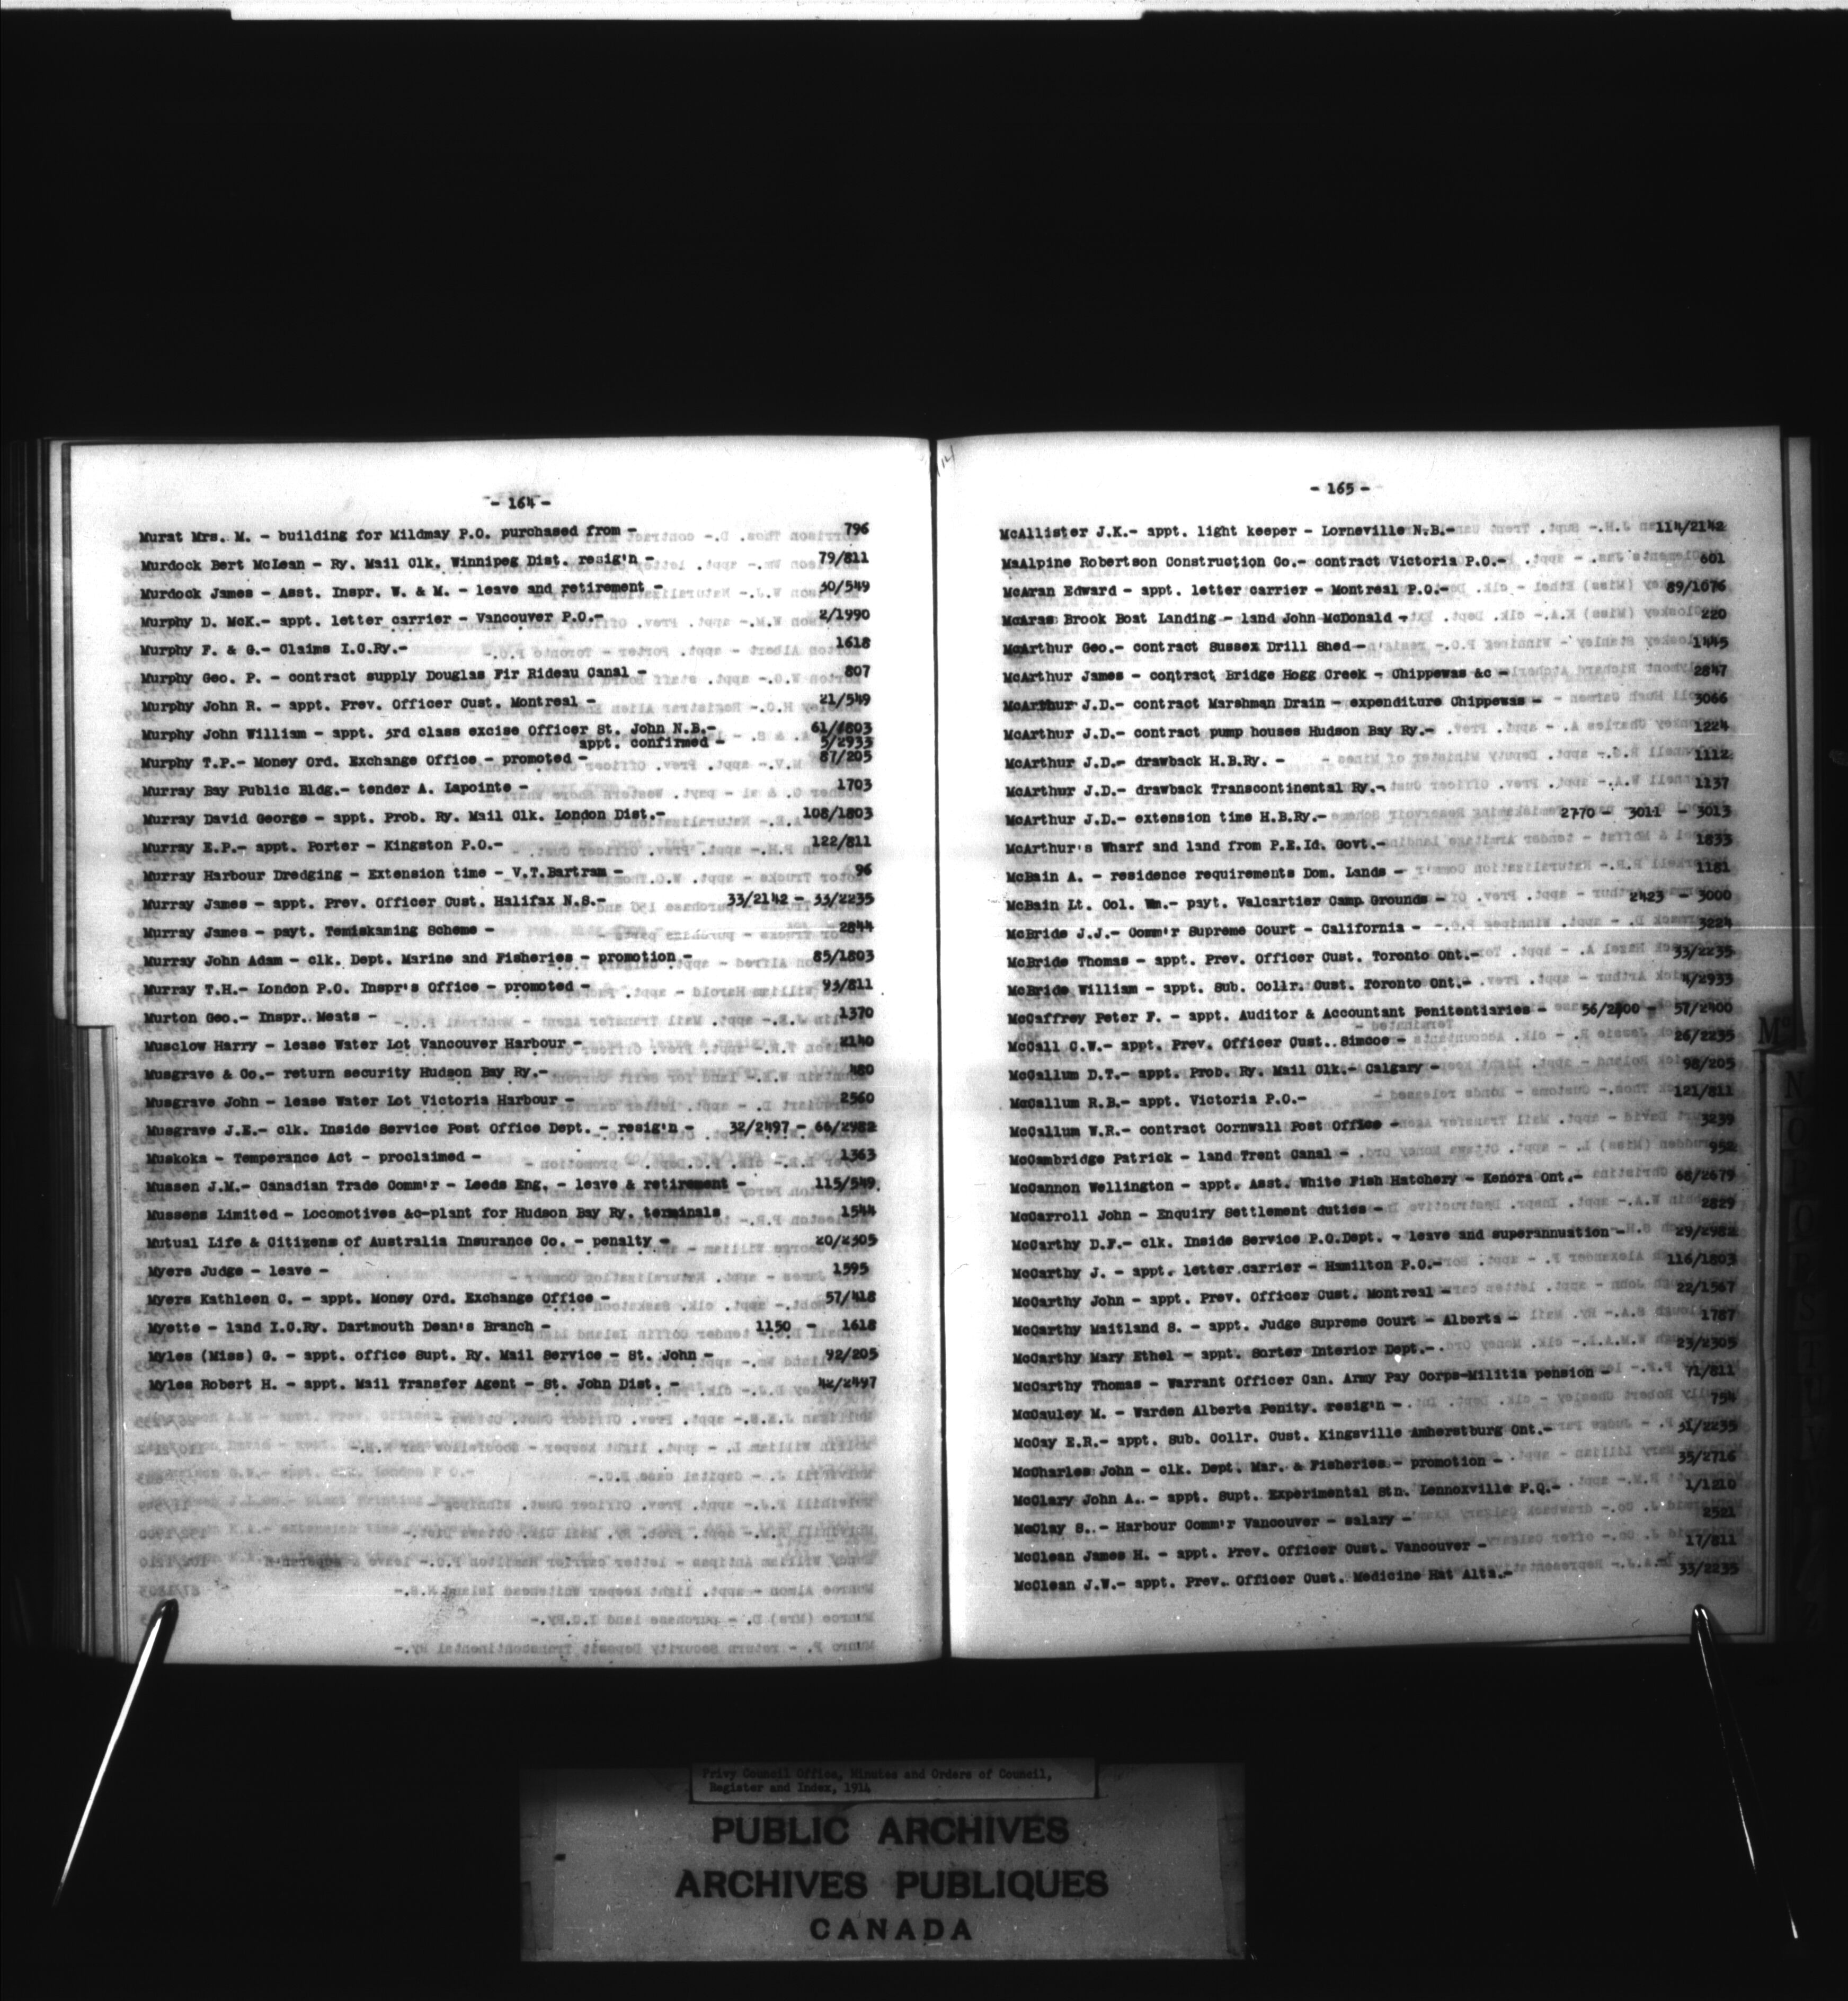 - 164 -
Murat Mrs. M. - building for Mildmay P.O. purchased from - 796
Murdock Bert McLean - Ry. Mail Clk. Winnipeg Dist. resig'n - 79/811
Murdock James - Asst. Inspr. W. & M. - leave and retirement - 30/549
Murphy D. McK.- appt. letter carrier - Vancouver P.O.- 2/1990
Murphy F. & G.- Claims I.C.Ry.- 1618
Murphy Geo. P. - contract supply Douglas Fir Rideau Canal - 807
Murphy John R. - appt. Prev. Officer Cust. Montreal - 21/549
Murphy John William - appt. 3rd class excise Officer St. John N.B.- 61/1803
appt. confirmed - 5/2933
Murphy T.P.- Money Ord. Exchange Office - promoted - 87/205
Murray Bay Public Bldg.- tender A. Lapointe - 1703
Murray David George - appt. Prob. Ry. Mail Clk. London Dist.- 108/1803
Murray E.P.- appt. Porter - Kingston P.O.- 122/811
Murray Harbour Dredging - Extension time - V.T.Bartram - 96
Murray James - appt. Prev. Officer Cust. Halifax N.S.- 33/2142 - 33/2235
Murray James - payt. Temiskaming Scheme - 2844
Murray John Adam - clk. Dept. Marine and Fisheries - promotion - 85/1803
Murray T.H.- London P.O. Inspr's Office - promoted - 93/811
Murton Geo.- Inspr. Meats - 1370
Musclow Harry - lease Water Lot Vancouver Harbour - 2140
Musgrave & Co.- return security Hudson Bay Ry.- 480
Musgrave John - lease Water Lot Victoria Harbour - 2560
Musgrave J.E.- clk. Inside Service Post Office Dept. - resig'n - 32/2497 - 66/2982
Muskoka - Temperance Act - proclaimed - 1363
Mussen J.M.- Canadian Trade Comm'r - Leeds Eng. - leave & retirement - 115/549
Mussens Limited - Locomotives &c-plant for Hudson Bay Ry. terminals 1544
Mutual Life & Citizens of Australia Insurance Co. - penalty - 20/2305
Myers Judge - leave - 1595
Myers Kathleen C. - appt. Money Ord. Exchange Office - 57/418
Myette - land I.C.Ry. Dartmouth Dean's Branch - 1150 - 1618
Myles (Miss) G. - appt. office Supt. Ry. Mail Service - St. John - 92/205
Myles Robert H. - appt. Mail Transfer Agent - St. John Dist. - 42/2497
- 165 -
McAllister J.K.- appt. light keeper - Lorneville N.B.- 114/2142
MaAlpine Robertson Construction Co.- contract Victoria P.O.- 601
McAran Edward - appt. letter carrier - Montreal P.O.- 89/1676
McAras Brook Boat Landing - land John McDonald - 220
McArthur Geo.- contract Sussex Drill Shed - 1445
McArthur James - contract Bridge Hogg Creek - Chippewas &c - 2847
McArthur J.D.- contract Marshman Drain - expenditure Chippewas - 3066
McArthur J.D.- contract pump houses Hudson Bay Ry.- 1224
McArthur J.D.- drawback H.B.Ry. - 1112
McArthur J.D.- drawback Transcontinental Ry.- 1137
McArthur J.D.- extension time H.B.Ry.- 2770 - 3011 - 3013
McArthur's Wharf and land from P.E.Id. Govt.- 1833
McBain A. - residence requirements Dom. Lands - 1181
McBain Lt. Col. Wm.- payt. Valcartier Camp Grounds - 2423 - 3000
McBride J.J.- Comm'r Supreme Court - California - 3224
McBride Thomas - appt. Prev. Officer Cust. Toronto Ont.- 33/2235
McBride William - appt. Sub. Collr. Cust. Toronto Ont.- 4/2933
McCaffrey Peter F. - appt. Auditor & Accountant Penitentiaries - 56/2400 - 57/2400
McCall C.W.- appt. Prev. Officer Cust. Simcoe - 26/2235
McCallum D.T.- appt. Prob. Ry. Mail Clk.- Calgary - 98/205
McCallum R.B.- appt. Victoria P.O.- 121/811
McCallum W.R.- contract Cornwall Post Office - 3239
McCambridge Patrick - land Trent Canal - 952
McCannon Wellington - appt. Asst. White Fish Hatchery - Kenora Ont.- 68/2679
McCarroll John - Enquiry Settlement duties - 2829
McCarthy D.F.- clk. Inside Service P.O.Dept. - leave and superannuation - 29/2982
McCarthy J. - appt. letter carrier - Hamilton P.O.- 116/1803
McCarthy John - appt. Prev. Officer Cust. Montreal - 22/1567
McCarthy Maitland S. - appt. Judge Supreme Court - Alberta - 1787
McCarthy Mary Ethel - appt. Sorter Interior Dept.- 23/2305
McCarthy Thomas - Warrant Officer Can. Army Pay Corps-Militia pension - 71/811
McCauley M. - Warden Alberta Penity. resig'n - 754
McCay E.R.- appt. Sub. Collr. Cust. Kingsville Amherstburg Ont.- 31/2235
McCharles John - clk. Dept. Mar. & Fisheries - promotion - 35/2716
McClary John A. - appt. Supt. Experimental Stn. Lennoxville P.Q.- 1/1210
McClay S. - Harbour Comm'r Vancouver - salary - 2521
McClean James H. - appt. Prev. Officer Cust. Vancouver - 17/811
McClean J.W.- appt. Prev. Officer Cust. Medicine Hat Alta.- 33/2235
Mc
Privy Council Office, Minutes and Orders of Council,
Register and Index, 1914
PUBLIC ARCHIVES
ARCHIVES PUBLIQUES
CANADA